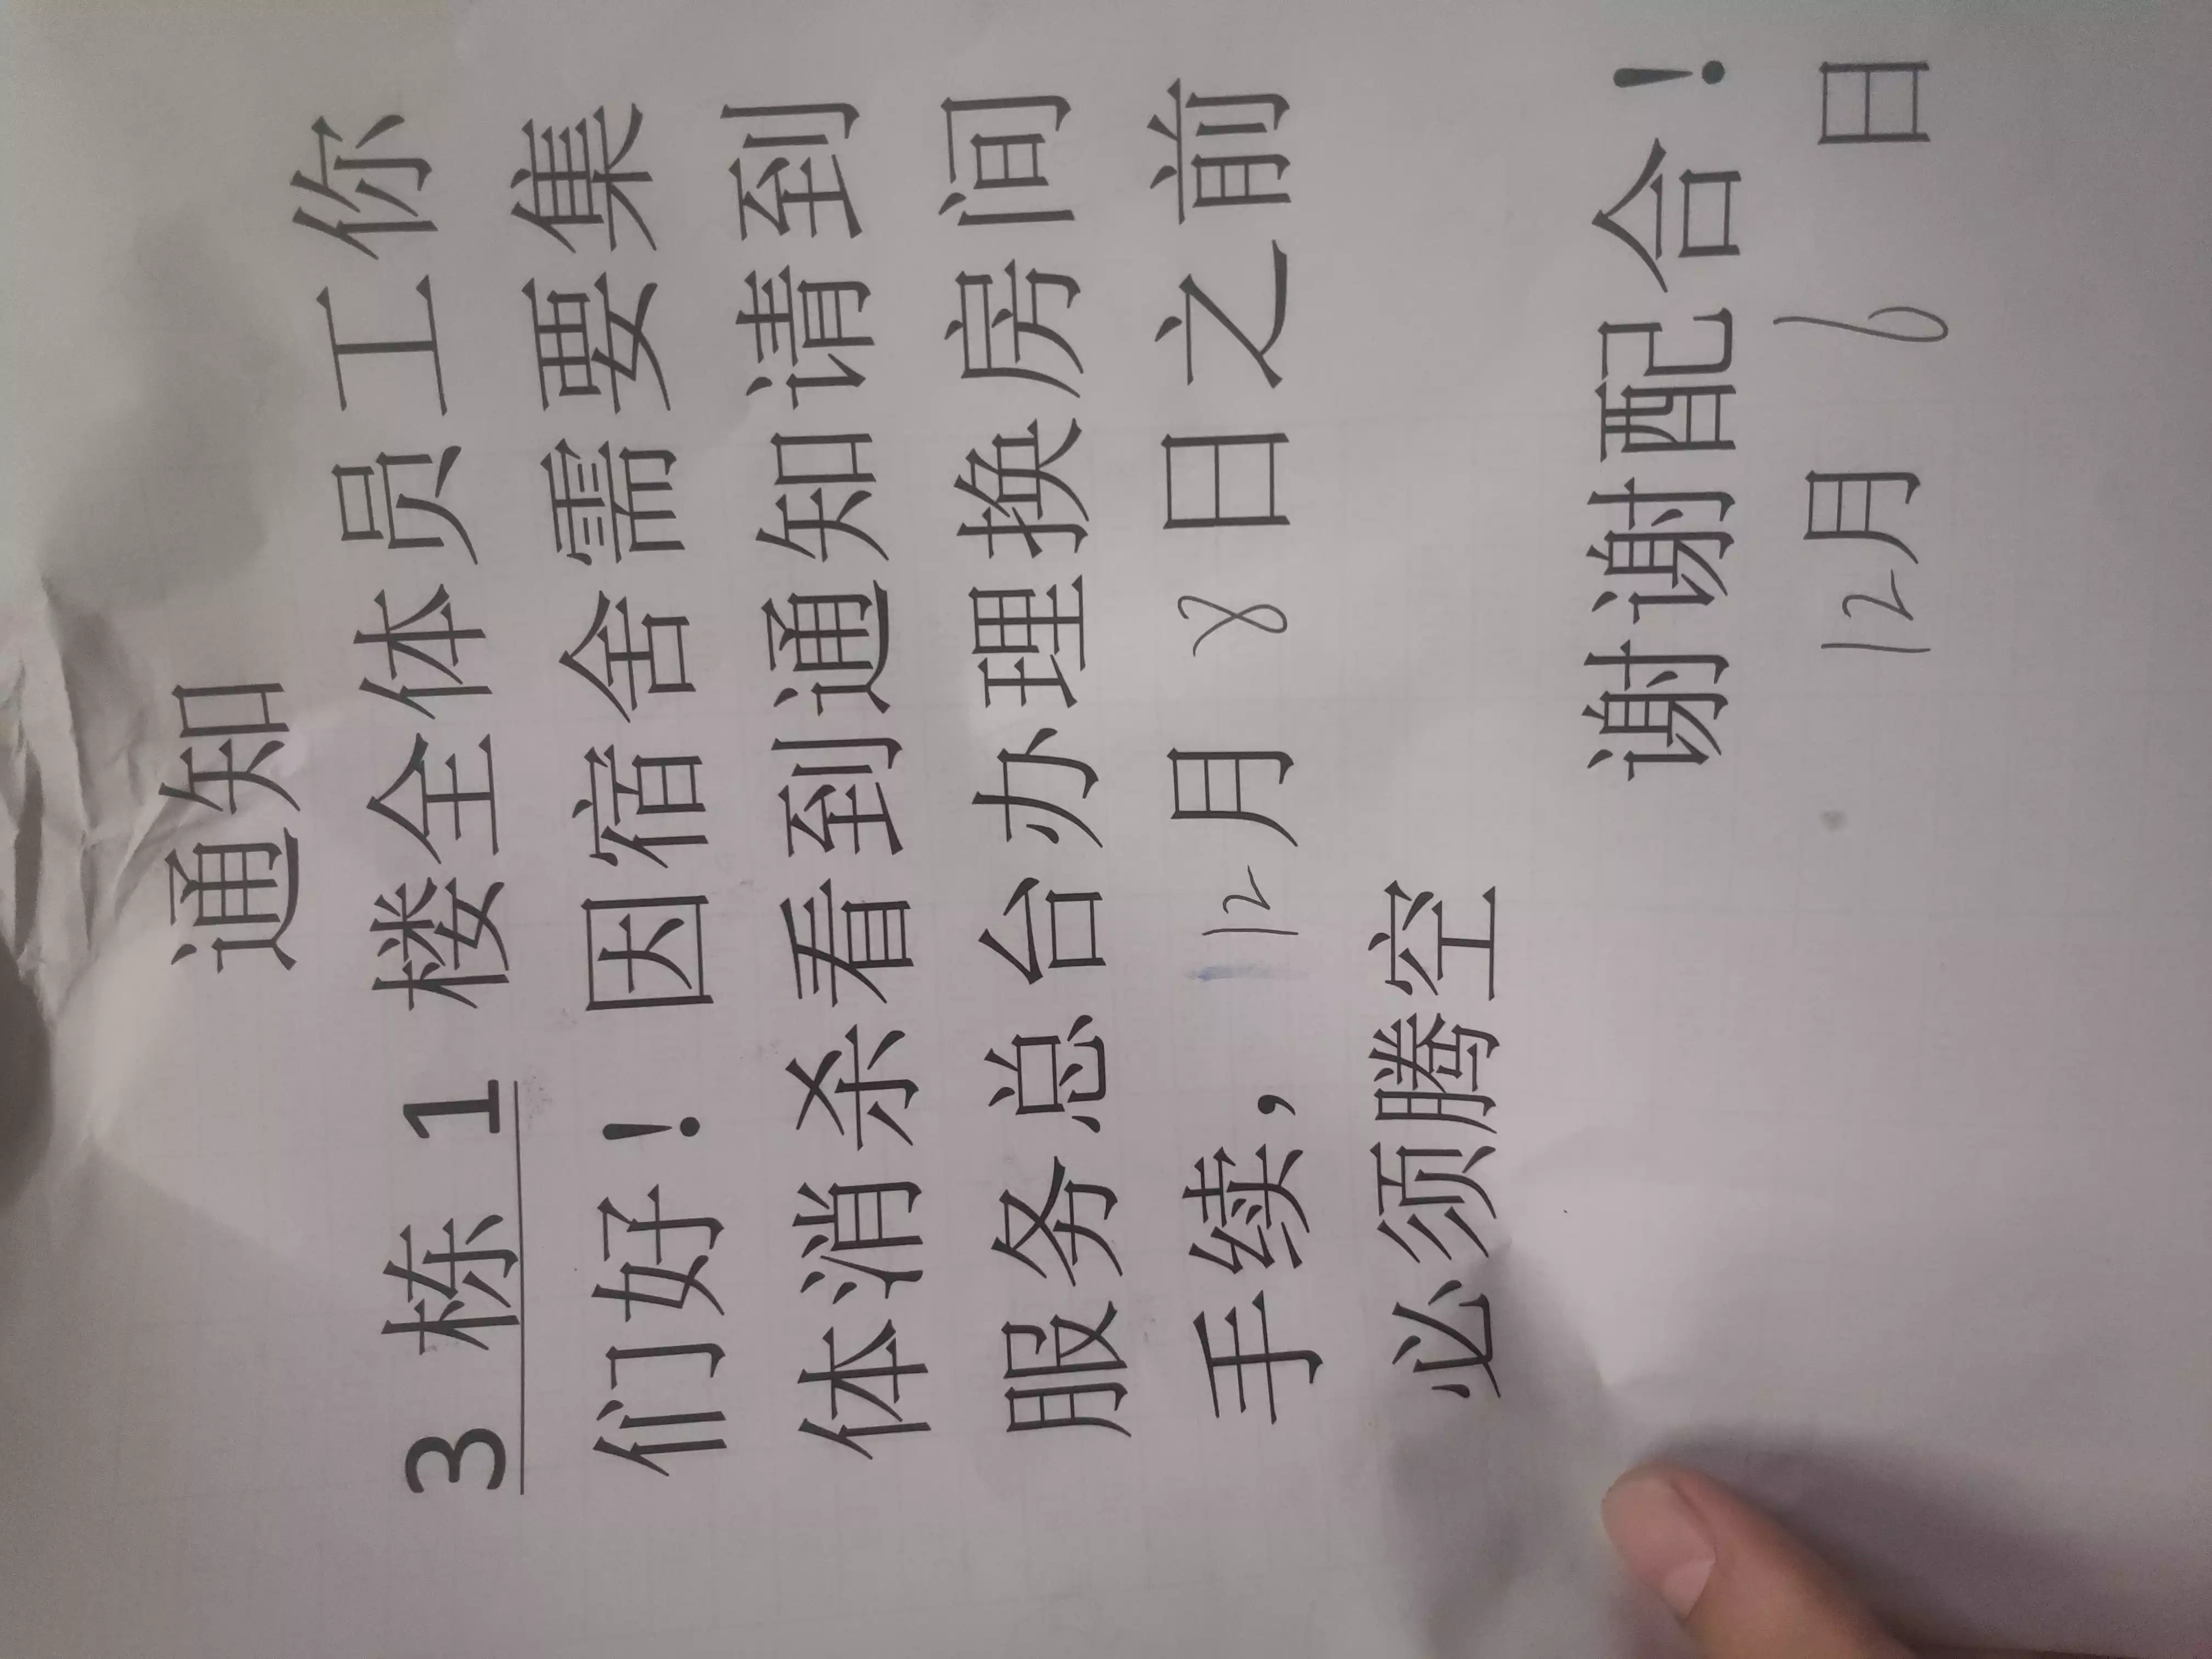 通知
3 栋 1 楼全体员工你
们好！因宿舍需要集
体消杀看到通知请到
服务总台办理换房间
手续，12月 8 日之前
必须腾空
谢谢配合！
12月 6 日